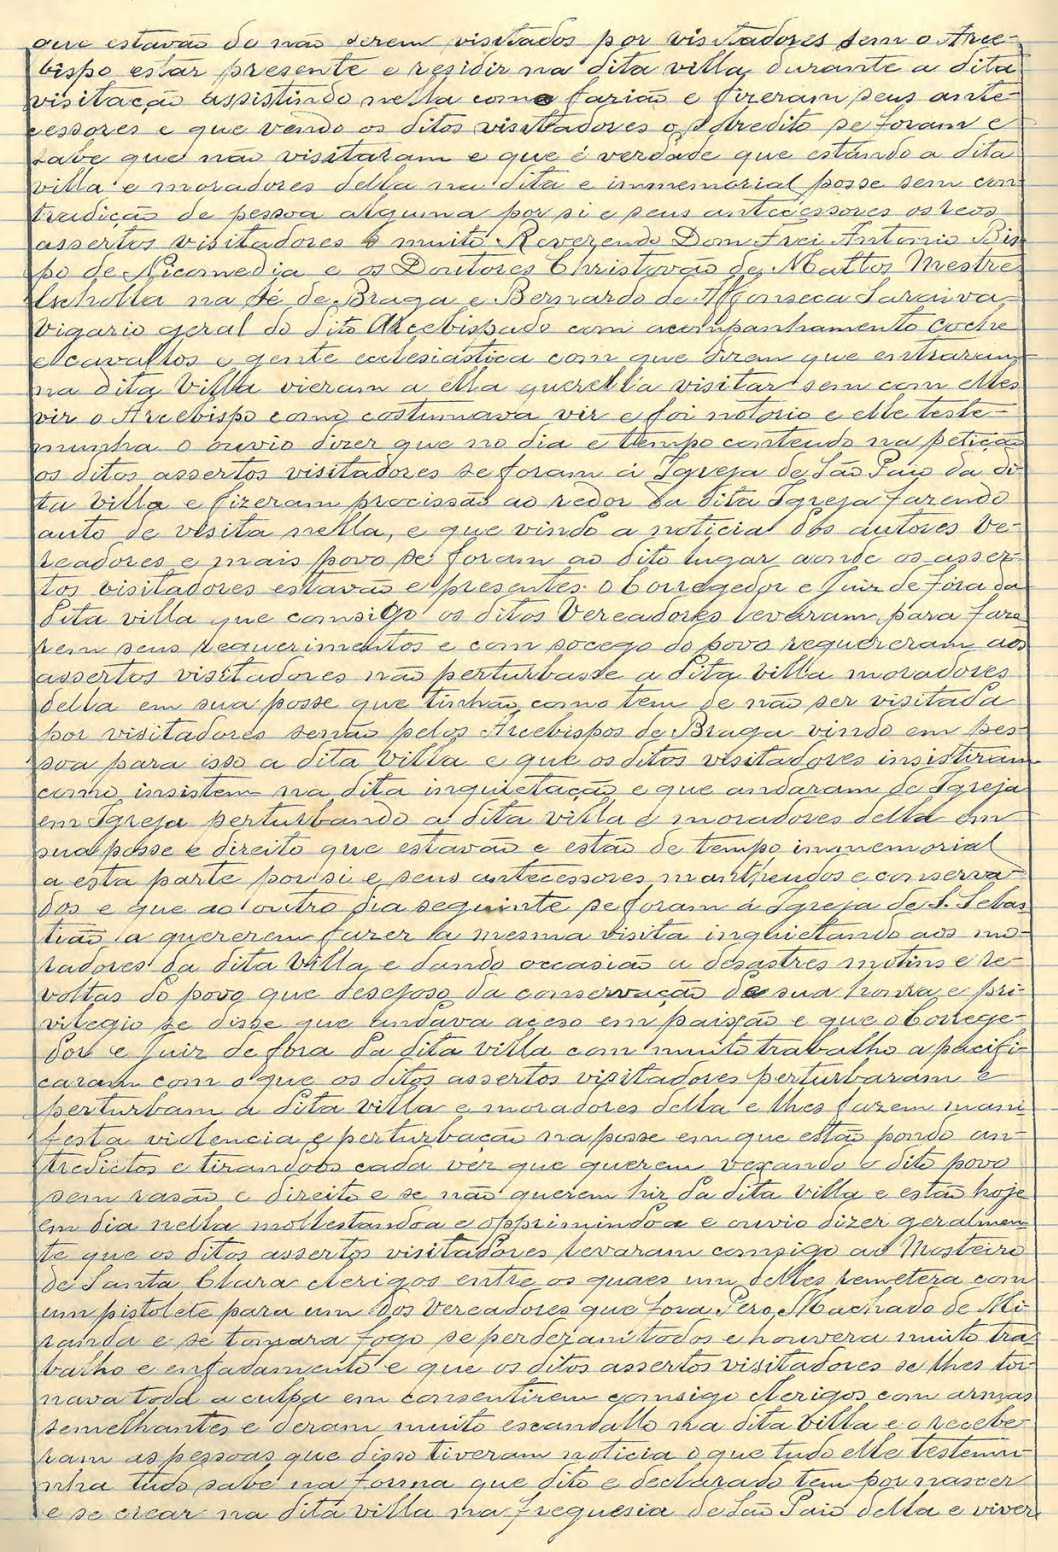 que estavão de não serem visitados por visitadores sem o Arce-
bispo estar presente e residir na dita villa durante a dita
visitação assistindo nella como farião e fizeram seus ante-
cessores e que vendo os ditos visitadores o sobredito se foram e
sabe que não visitaram e que é verdade que estando a dita
villa e moradores della na dita e immemorial posse sem con-
tradição de pessoa alguma por si e seus antecessores os reos
assertos visitadores o muito Reverendo Dom Frei Antonio Bis-
po de Nicomedia e os Doutores Christovão de Mattos Mestre
Escholla na Sé de Braga e Bernardo de Affonseca Saraiva
Vigario geral do dito Arcebispado com acompanhamento coche
e cavallos e gente ecclesiastica com que direm que entraram
na dita Villa vieram a ella querella visitar sem com elles
vir o Arcebispo como costumava vir e foi notorio e elle teste-
munha o ouvio dizer que no dia e tempo contendo na petição
os ditos assertos visitadores se foram á Igreja de São Paio da di-
ta villa e fizeram procissão ao redor da dita Igreja fazendo
auto de visita nella, e que vindo a noticia dos autores Ve-
readores e mais povo se foram ao dito lugar aonde os asser-
tos visitadores estavão e presentes o Corregedor e Juiz de Fora da
dita villa que comsigo os ditos Vereadores levaram para faze
rem seus requerimentos e com socego do povo requereram aos
assertos visitadores não perturbasse a dita villa moradores
della em sua posse que tinhão como tem de não ser visitada
por visitadores senão pelos Arcebispos de Braga vindo em pes-
soa para isso a dita Villa e que os ditos visitadores insistiram
como insistem na dita inquietação e que andaram de Igreja
em Igreja perturbando a dita villa e moradores della em
sua posse e direito que estavão e estão de tempo immemorial
a esta parte por si e seus antecessores mantheudos e conserva-
dos e que ao outro dia seguinte se foram á Igreja de S. Sebas
tião a quererem fazer a mesma visita inquietando aos mo-
radores da dita Villa e dando occasião a desastres motins e re-
voltas do povo que desejoso da conservação de sua honra e pri-
vilegio se disse que andava aceso em paixão e que o Correge-
dor e Juiz de fora da dita villa com muito trabalho apacifi-
caram com o que os ditos assertos visitadores perturbaram e
perturbam a dita villa e moradores della e lhes fazem mani-
festa violencia e perturbação na posse em que estão pondo an-
tredictos e tirandoos cada vez que querem vexando o dito povo
sem rasão e direito e se não querem hir da dita villa e estão hoje
em dia nella mollestandoa e opprimindoa e ouvio dizer geralmen-
te que os ditos assertos visitadores levaram comsigo ao Mosteiro
de Santa Clara clerigos entre os quaes um delles remetera com
um pistolete para um dos Vereadores que fora Pero Machado de Mi-
randa e se tomara fogo se perderam todos e houvera muito tra
balho e enfadamento e que os ditos assertos visitadores se lhes tor-
nava toda a culpa em consentirem comsigo clerigos com armas
semelhantes e deram muito escandallo na dita Villa e o recebe-
ram as pessoas que disso tiveram noticia o que tudo elle testemu-
nha tudo sabe na forma que dito e declarado tem por nascer
e se crear na dita villa na freguesia de São Paio della e viver